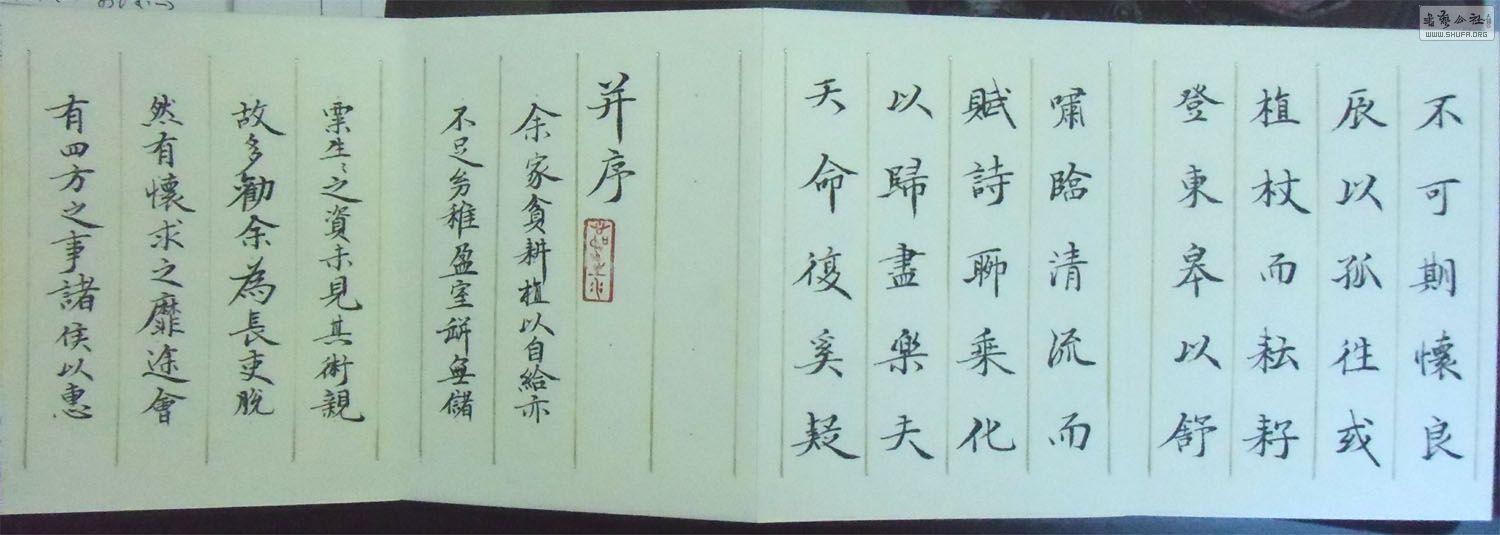 不可期懷良
辰以孤往或
植杖而耘耔
登東皋以舒
嘯臨清流而
賦詩聊乘化
以歸盡樂夫
天命復奚疑
并序
余家貧耕植以自給亦
不足㓜稚盈室缾無儲
粟生〻之資未見其術親
故多勸余為長吏脫
然有懷求之靡途會
有四方之事諸侯以惠
書藝公社
WWW.SHUFA.ORG